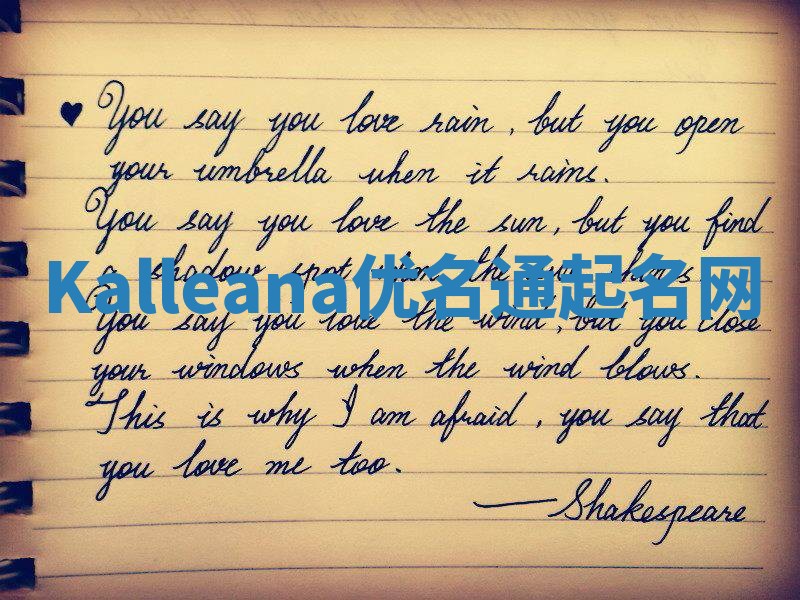 ♥ You say you love rain, but you open
your umbrella when it rains.
You say you love the sun, but you find
a shadow spot when the sun shines
Kalleana优名通起名网
You say you love the wind, but you close
your windows when the wind blows.
This is why I am afraid, you say that
you love me too.
—Shakespeare